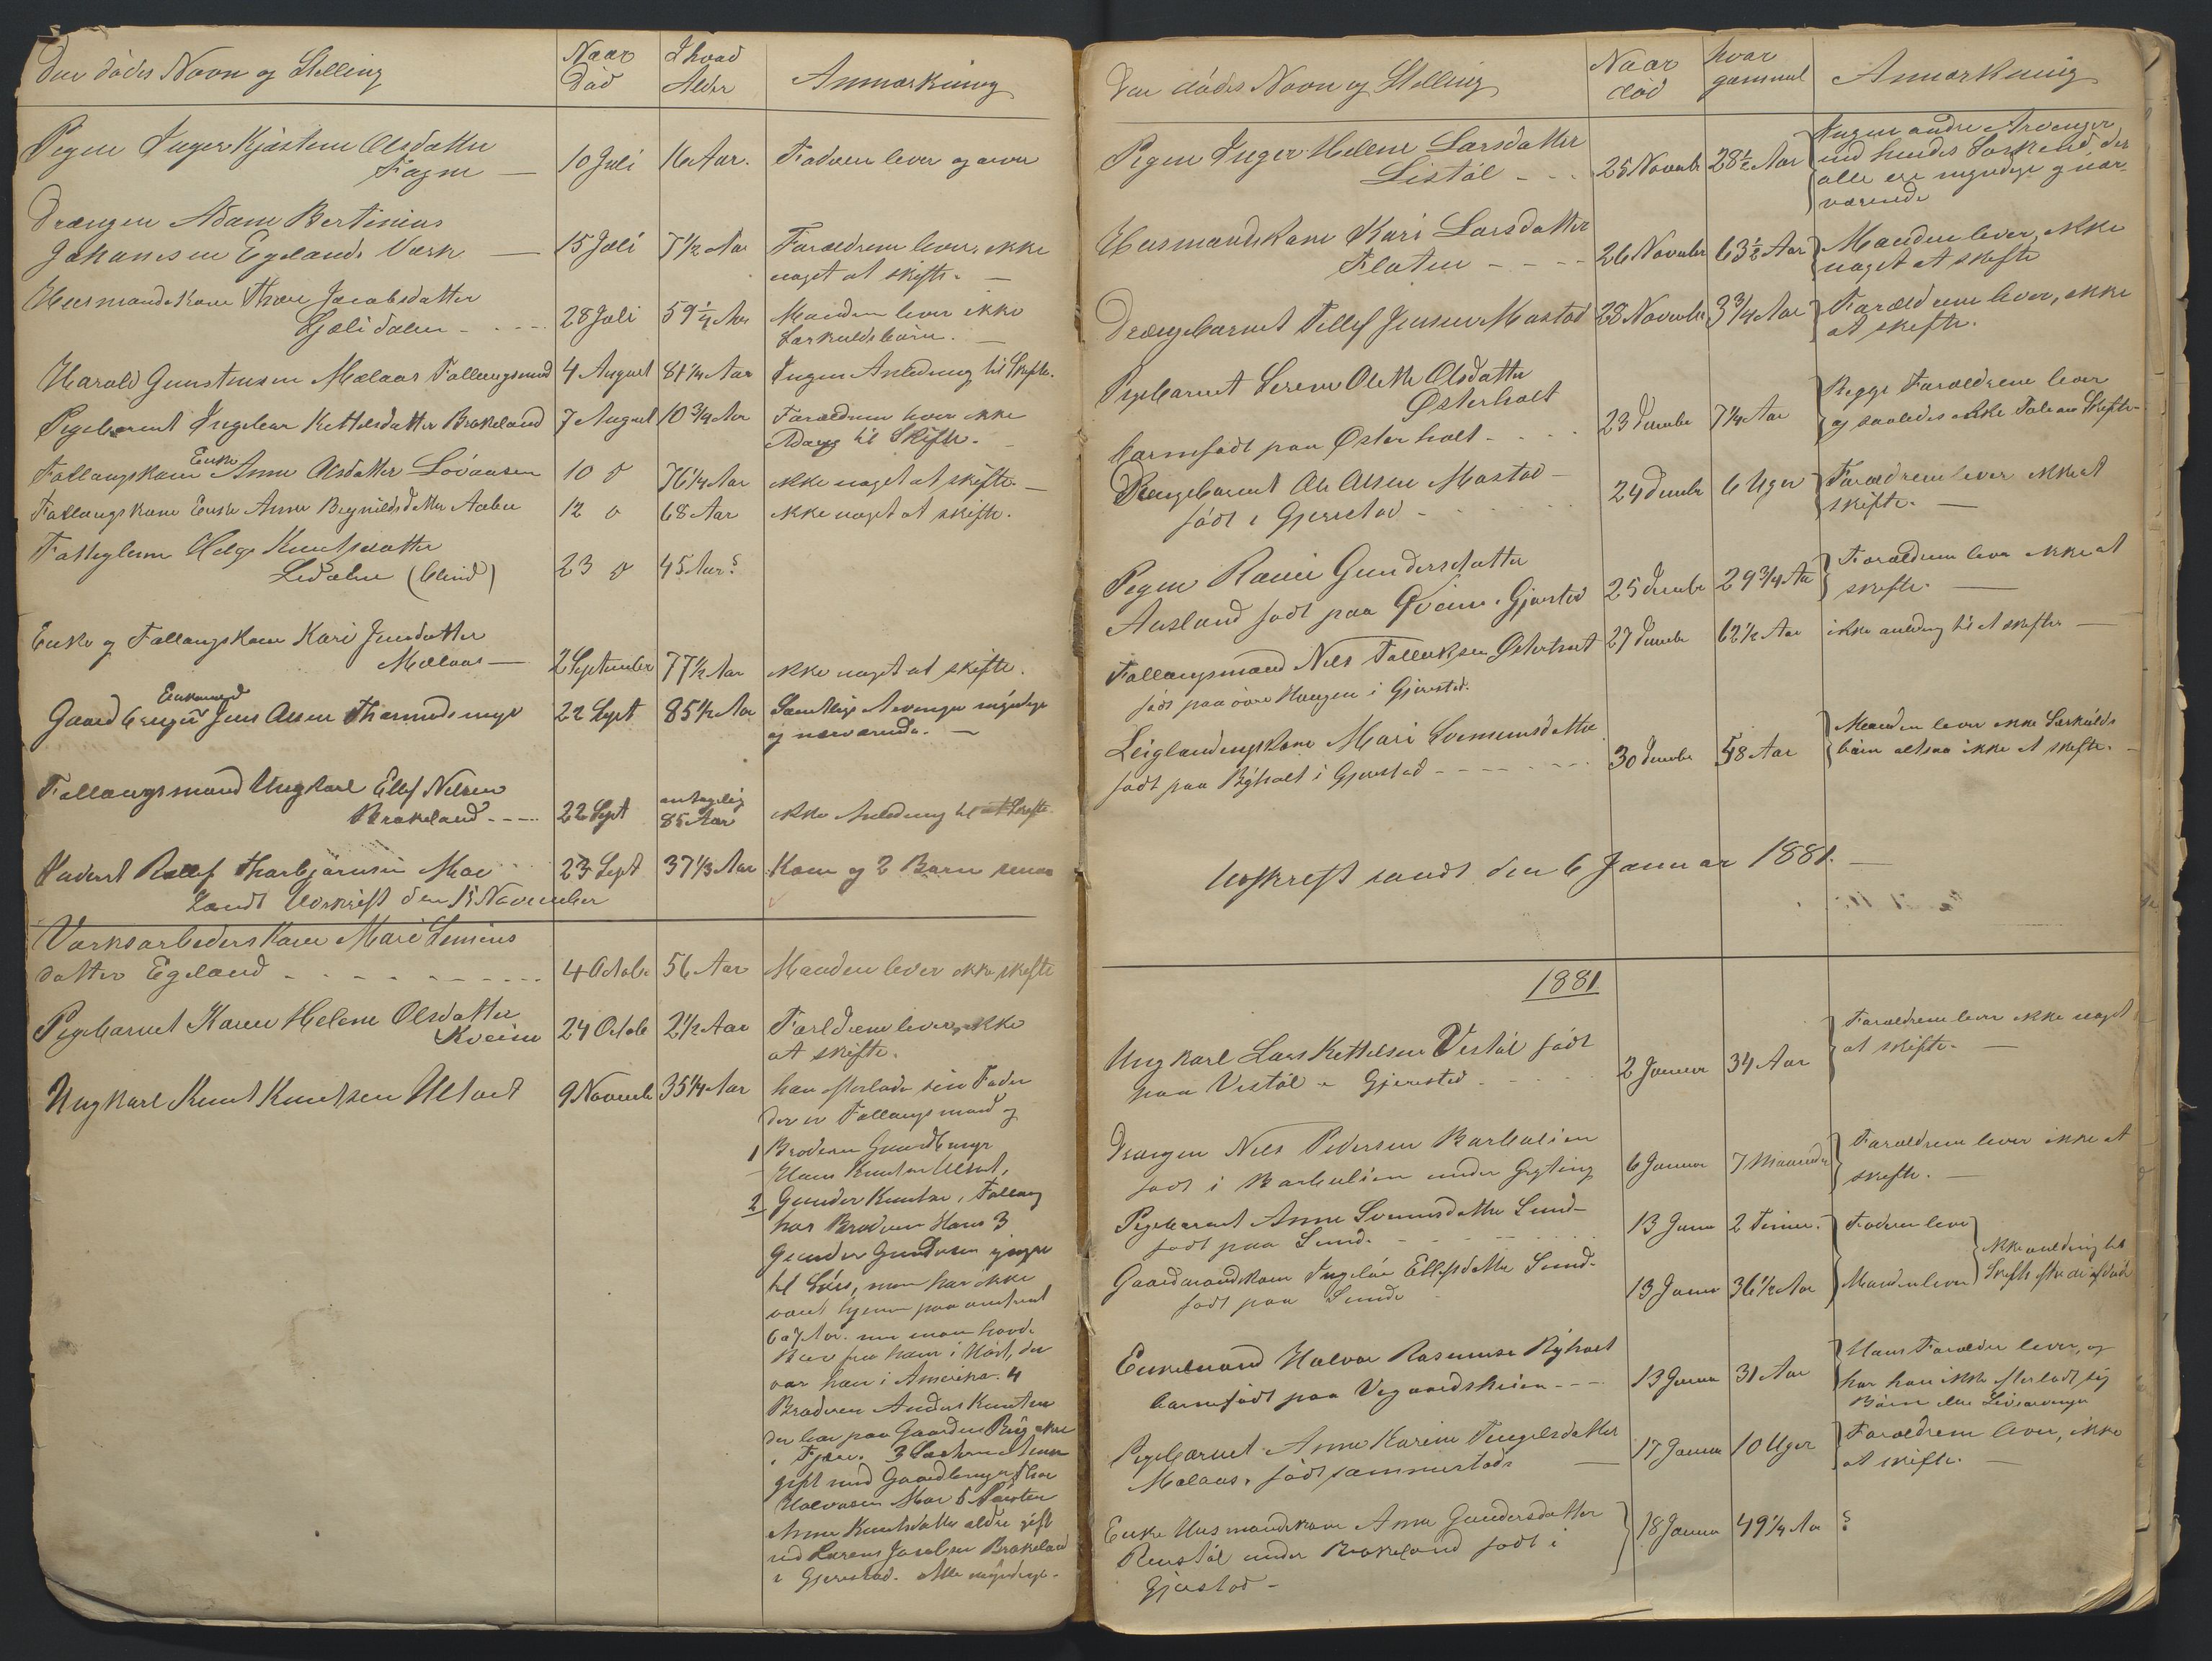 Den dødes Navn og Stilling
Naar Død
I hvad Alder
Anmærkning
Pigen Inger Kjæstine Olsdatter
Fagne —
10 Juli
16 Aar.
Faderen lever og arver
Drengen Adam Bertinius
Johansen Egelands Værk —
15 Juli
7 1/2 Aar
Forældrene lever, ikke
noget at skifte. —
Huusmandskone Thore Jacobsdatter
Ljølidalen - - - -
28 Juli
59 1/4 Aar
Manden lever ikke
Særkuldsbørn. —
Harald Gunstensen Mælaas Follaugsmand
4 August
81 1/4 Aar
Ingen Anledning til Skifte.
Pigebarnet Ingebor Kettelsdatter Brokeland
7 August
10 3/4 Aar
Forældrene lever ikke
til Skifte. —
Follaugskone Enke Anne Olsdatter Løvaasen
10 d
76 1/4 Aar
ikke noget at skifte. —
Follaugskone Enke Anne Aabu
12 d
68 Aar
ikke noget at skifte.
Fattiglem Helge Knutsdatter
Lidalen (blind)
23 d
45 Aar?
Enke og Follaugskone Kari Jensdatter
Mælaas —
2 September
77 1/2 Aar
ikke noget at skifte.
Gaardbruger Enkemand Jens Olsen Thormodsmyr
22 Sept
85 1/2 Aar
Samtlige Arvinger myndige
og nærværende. —
Follaugsmand Ungkarl Ellef Nilsen
Brokeland - - - -
22 Sept
antagelig
85 Aar
ikke Anledning til at Skifte
Rolef Thorbjørnsen Moe
23 Sept
37 1/3 Aar
Kone og 2 Børn
Sendt Udskrift den 15 November
Værksarbeiderskone Mari
datter Egeland - - - - - - - -
4 Octobr
56 Aar
Manden lever ikke skifte
Pigebarnet Karen Helene Olsdatter
Kveim
24 Octob
2 1/2 Aar
Forældrene lever, ikke
at skifte.
Ungkarl Knut Knutsen Ulltvet
9 Novemb
35 1/4 Aar
han efterlader sin Fader
der er Follaugsmand og
1 Broderen Gaardbruger
Hans Knutsen
2 Gunder Knutsen, Follaug
hos Broderen Hans 3
Gunder yngre
til Søes, man har ikke
været hjemme paa omtrent
6 a 7 Aar. men man havde
Brev fra ham i Høst, da
var han i Amerika. 4
Broderen Anders Knutsen
der bor paa Gaarden
i Fjære. 3
gift med Gaardbruger Thor
Halvorsen Moe 5 Søster
Anne Knutsdatter ældre gift
med Lorens Jacobsen Brokeland
i Gjerestad. Alle myndige.
Den dødes Navn og Stilling
Naar død
hvor gammel
Anmærkning
Pigen Inger Helene Larsdatter
Listøl - - -
25 Novembr
28 1/2 Aar
Ingen andre Arvinger
end hendes Søskend, der
alle ere myndige og nær-
værende
Husmandskone Kari Larsdatter
Floten - - - -
26 Novembr
63 1/2 Aar
Manden lever, ikke
noget at skifte
Drengebarnet Tellef Jensen Mostad
28 Novembr
3 3/4 Aar
Forældrene lever, ikke
at skifte.
Pigebarnet Serene Olette Olsdatter
Østerholt
barnefødt paa Østerholt - - - -
23 Decembr
7 1/4 Aar
Begge Forældrene lever
og saaledes ikke Tale om Skifte
Drengebarnet Ole Olsen Mostad —
født i Gjerrestad - - - - - -
24 Decembr
6 Uger
Forældrene lever ikke at
skifte. —
Pigen Gundersdatter
Ausland født paa Qveim i Gjerestad
25 Decembr
29 3/4 Aar
Forældrene lever ikke at
skifte. —
Follaugsmand Nils Tallaksen Østerholt
født paa øvre Haugen i Gjerestad.
27 Decembr
62 1/2 Aar
ikke anledning til at skifte —
Leiglændingskone Mari Svennumsdatter
født paa Ryholt i Gjerestad - - - - - -
30 Decembr
58 Aar
Manden lever ikke Særkulds
børn altsaa ikke at skifte. —
Udskrift sendt den 6 Januar 1881. —
1881
Ungkarl Lars Kettelsen Vestøl født
paa Vestøl i Gjerestad - - - -
2 Januar
34 Aar
Forældrene lever ikke noget
at skifte. —
Drengen Nils Pedersen Barbulien
født i Barbulien under Gryting
6 Januar
7 Maaneder
Forældrene lever ikke at
skifte. —
Pigebarnet Anne Svennumsdatter Sund-
født paa Sund. - - - - - -
13 Janu
2 Timer.
Faderen lever
ikke anledning til
Skifte efter de afdøde
Gaardmandskone Ingebør Ellefsdatter Sund-
født paa Sunde
13 Januar
36 1/2 Aar
Manden lever
Enkemand Halvor Rasmusen Ryholt
barnefødt paa Vegaardsheien - - -
13 Januar
31 Aar
Hans Forældre lever, og
har han ikke efterladt sig
Børn eller Livsarvinger
Pigebarnet Anne Karine Tengelsdatter
Mælaas, født sammesteds —
17 Januar
10 Uger
Forældrene lever, ikke
at skifte. —
Enke Husmandskone Anne Gundersdatter
Renstøl under Brokeland født i
Gjerestad -
18 Januar
49 1/4 Aar
?